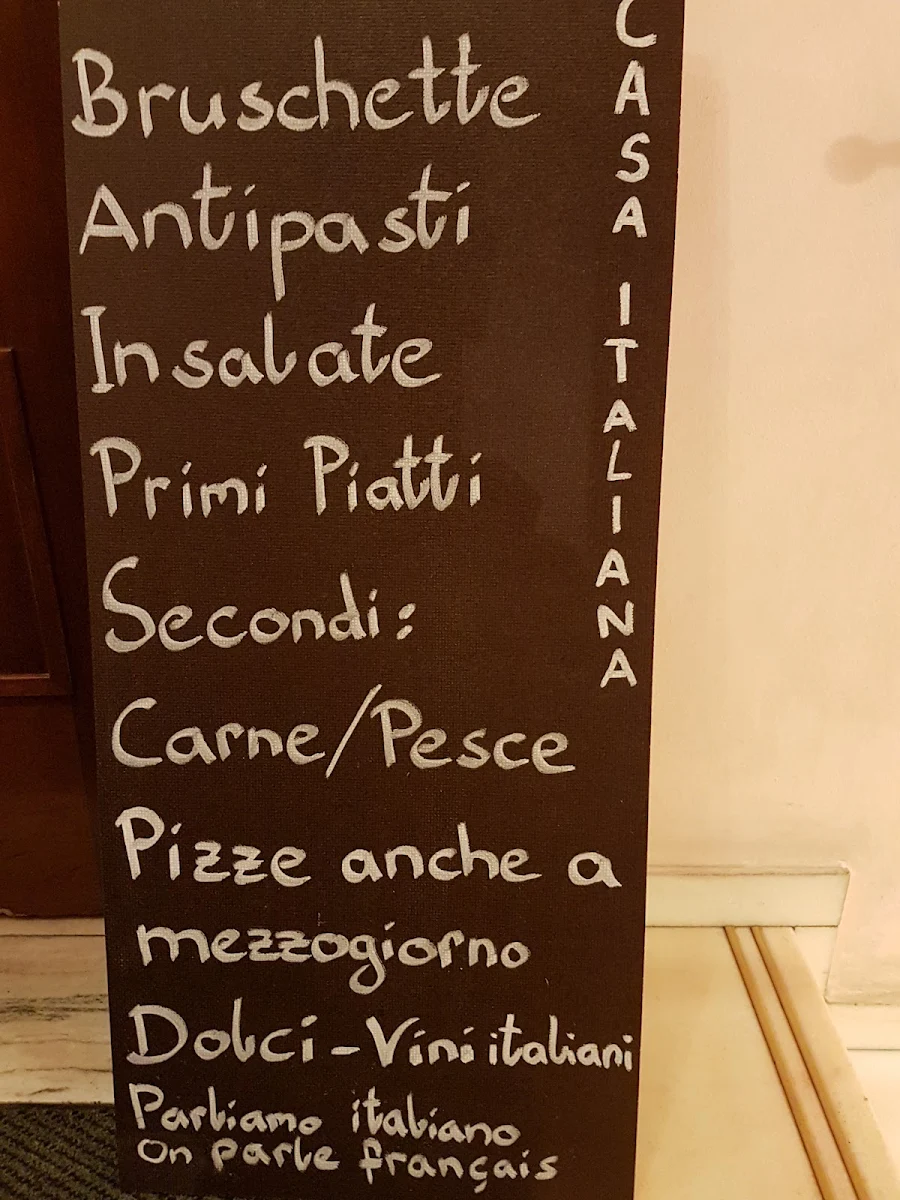 Bruschette
Antipasti
Insalate
Primi Piatti
Secondi:
Carne/Pesce
Pizze anche a
mezzogiorno
Dolci - Vini italiani
Parliamo italiano
on parle français
CASA ITALIANA